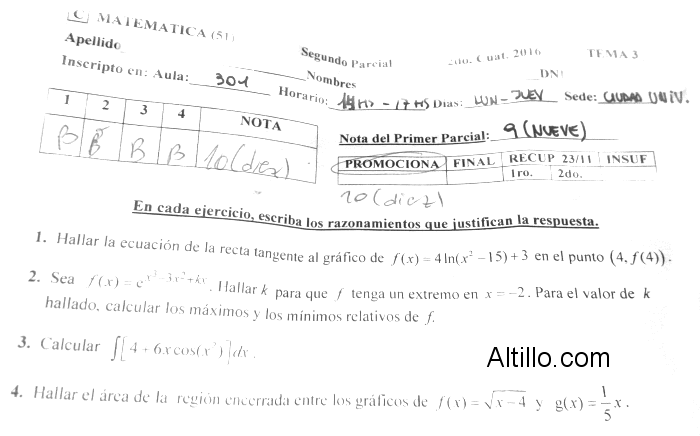 C MATEMATICA (51) Segundo Parcial 2do. Cuat. 2016 TEMA 3
Apellido Nombres DNI
Inscripto en: Aula: 301 Horario: 14 Hs - 17 HS Días: LUN - JUEV Sede: CIUDAD UNIV.
1 2 3 4 NOTA
B B B B 10 (diez)
Nota del Primer Parcial: 9 (NUEVE)
PROMOCIONA FINAL RECUP 23/11 INSUF
1ro. 2do.
10 (diez)
En cada ejercicio, escriba los razonamientos que justifican la respuesta.
1. Hallar la ecuación de la recta tangente al gráfico de f(x) = 4 ln(x² − 15) + 3 en el punto (4, f(4)).
2. Sea f(x) = e^(x³−3x²+kx). Hallar k para que f tenga un extremo en x = −2. Para el valor de k
hallado, calcular los máximos y los mínimos relativos de f.
3. Calcular ∫[4 + 6x cos(x²)]dx.
Altillo.com
4. Hallar el área de la región encerrada entre los gráficos de f(x) = √(x−4) y g(x) = 1/5 x.